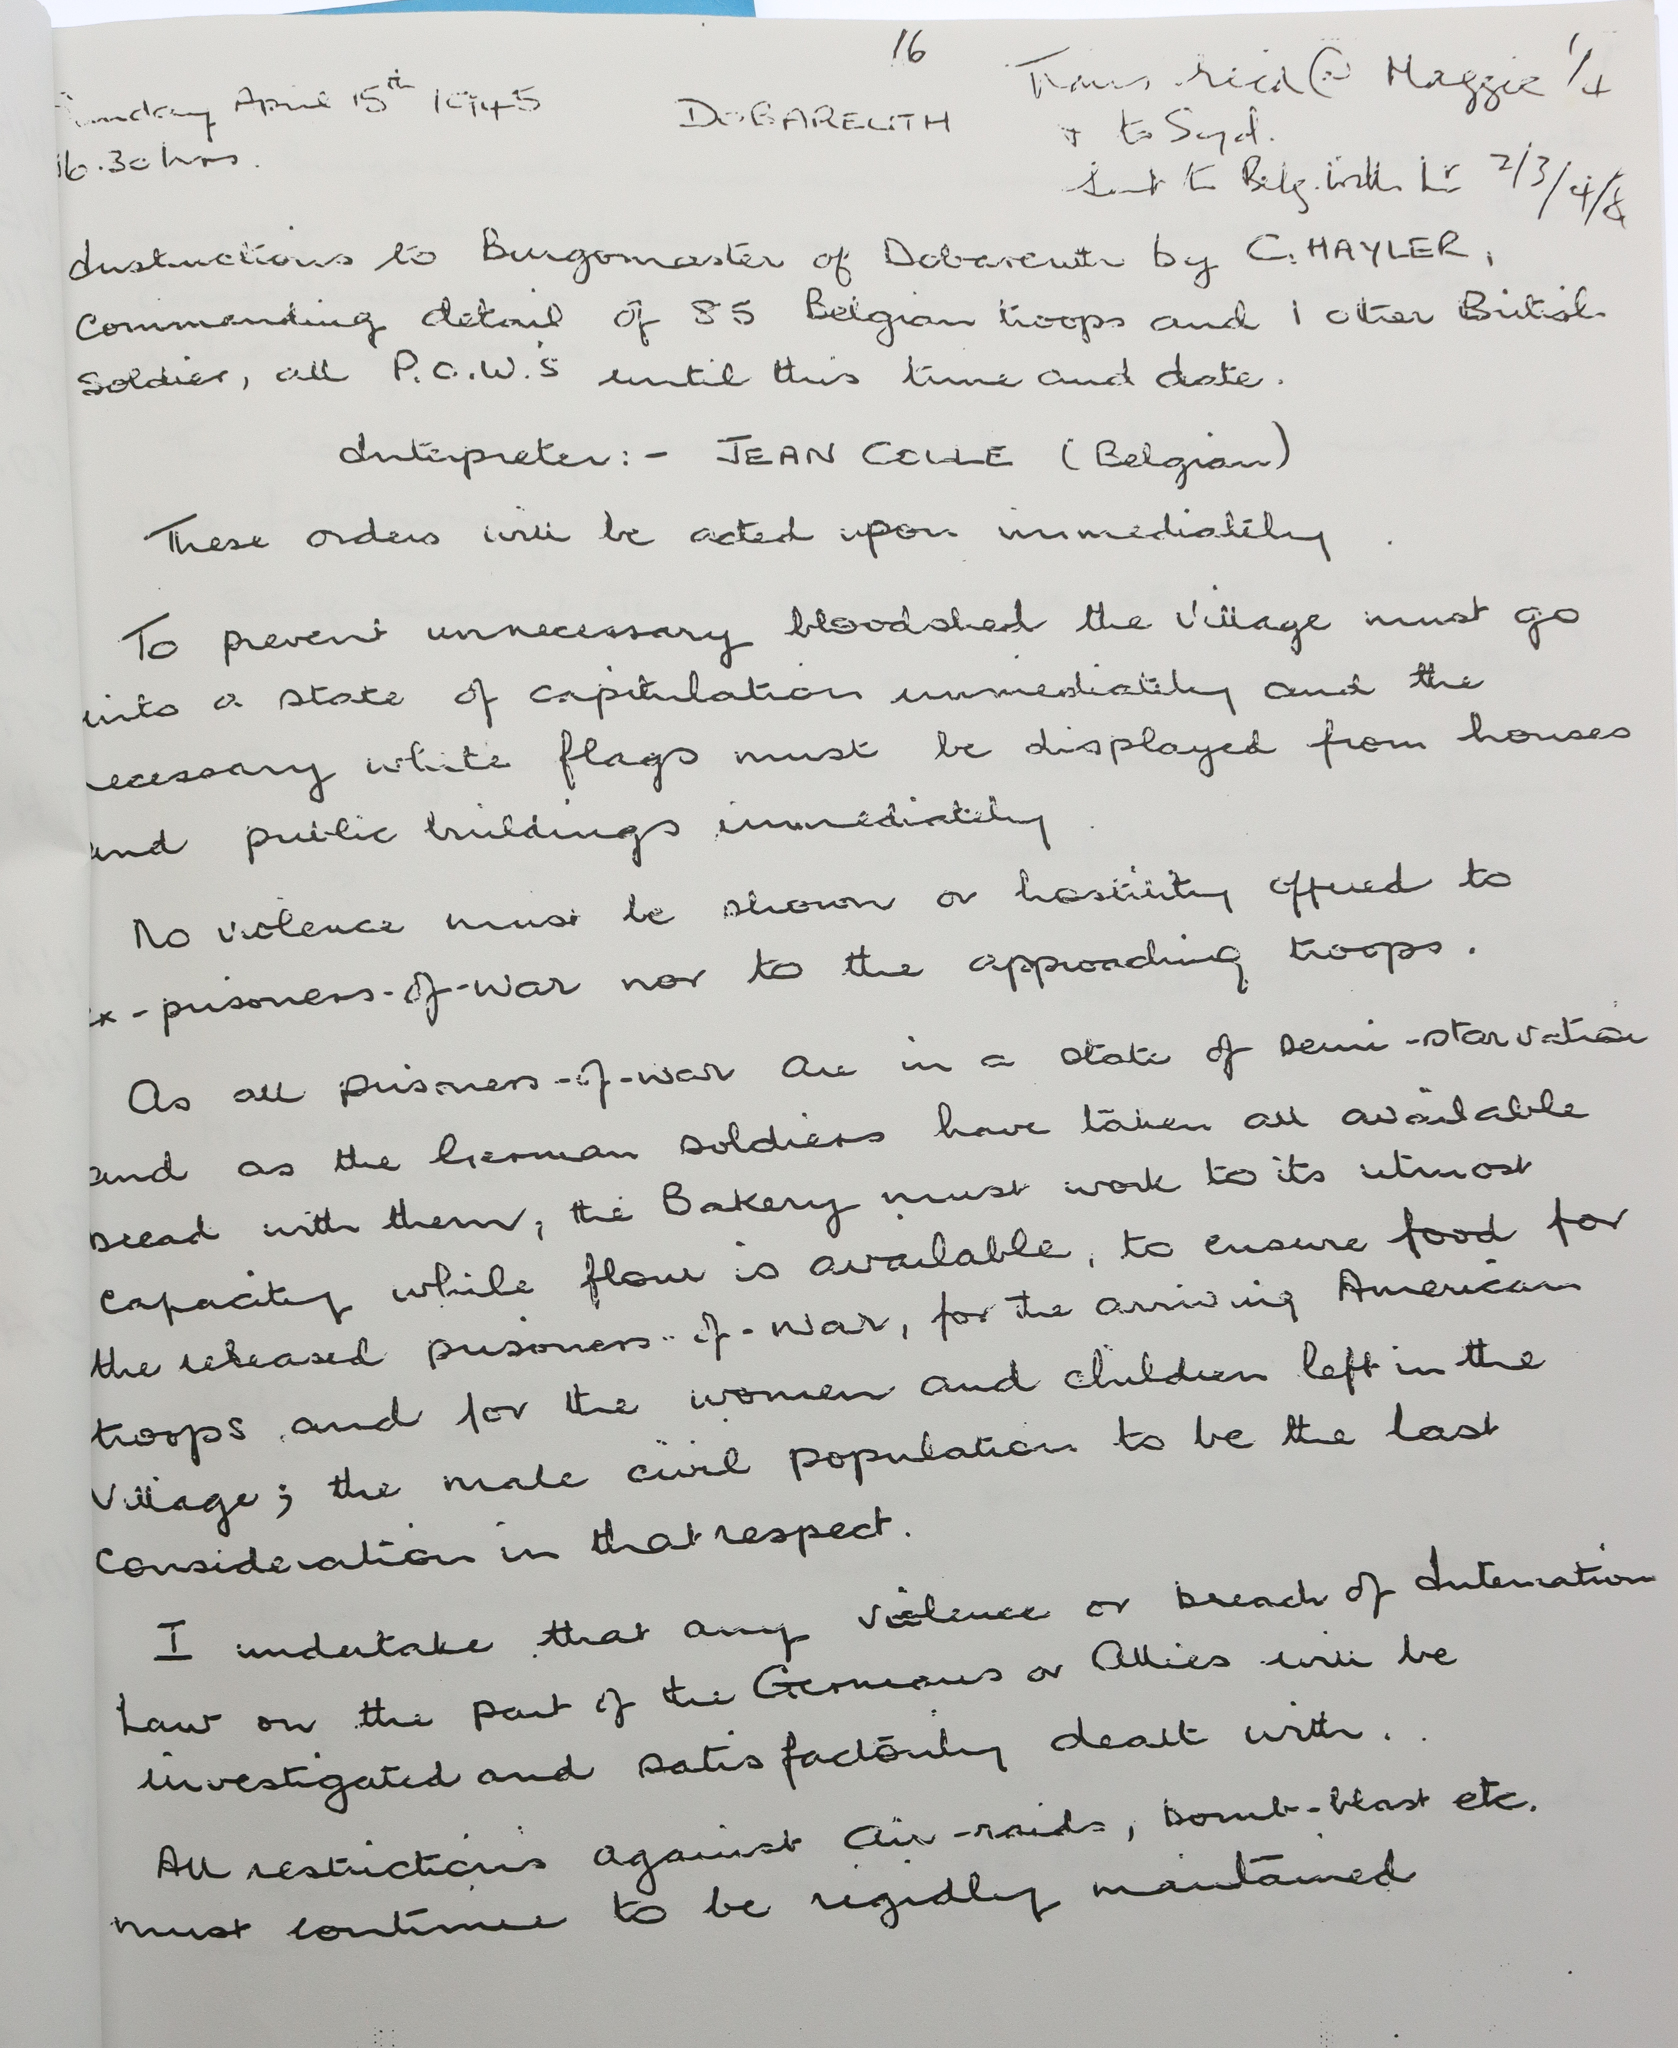 16
Sunday April 15th 1945
16.30 hrs.
DOBAREUTH
Maggie 1/4
+ to Syd.
Sent to Belg. with Lr 2/3/4/8
Instructions to Burgomaster of Dobareuth by C. HAYLER,
Commanding detail of 85 Belgian troops and 1 other British
Soldier, all P.O.W.'s until this time and date.
Interpreter:- JEAN COLLE (Belgian)
These orders will be acted upon immediately.
To prevent unnecessary bloodshed the Village must go
into a state of capitulation immediately and the
necessary white flags must be displayed from houses
and public buildings immediately.
No violence must be shown or hostility offered to
ex-prisoners-of-war nor to the approaching troops.
As all prisoners-of-war are in a state of semi-starvation
and as the German soldiers have taken all available
bread with them, the Bakery must work to its utmost
capacity while flour is available, to ensure food for
the released prisoners-of-war, for the arriving American
troops and for the women and children left in the
Village; the male civil population to be the last
consideration in that respect.
I undertake that any violence or breach of Internation
Law on the part of the Germans or Allies will be
investigated and satisfactorily dealt with.
All restrictions against air-raids, bomb-blast etc.
must continue to be rigidly maintained